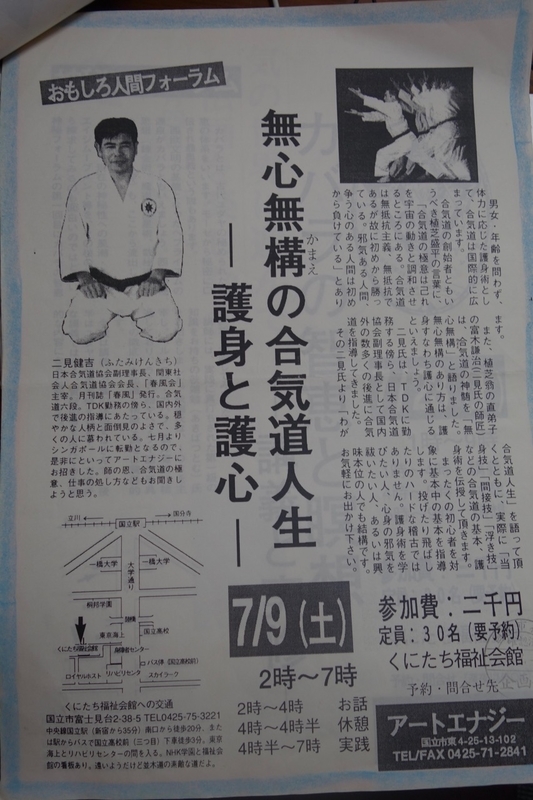 おもしろ人間フォーラム
無心無構の合気道人生
かまえ
―護身と護心―
男女・年齢を問わず、
体力に応じた護身術とし
て、合気道は国際的に広
まっています。
合気道の創始者ともい
うべき植芝盛平の言葉に、
「合気道の極意は己れ
を宇宙の動きと調和させ
るところにある。合気道
は無抵抗主義、無抵抗で
あるが故に初めから勝っ
ている。邪気ある人間、
争う心のある人間は初め
から負けている」とあり
ます。
また、植芝翁の直弟子
の富木謙治(二見氏の師匠)
は、合気道の神髄を「無
心無構」と語りました。
無心無構のあり方は、護
身すなわち護心に通じる
といえましょう。
二見氏は、TDKに勤
務する傍ら、日本合気道
協会副理事長として国内
外の数多くの後進に合気
道を指導してきました。
その二見氏より「わが
合気道人生」を語って頂
くとともに、実際に「当
身技」「間接技」「浮き技」
などの合気道の基本、護
身術を伝授して頂きます。
まったくの初心者を対
象に基本中の基本を指導
します。投げたり飛ばし
たりのハードな稽古では
ありません。護身術を学
びたい人、心身の邪気を
祓いたい人、あるいは興
味本位の人でも結構です。
お気軽にお出かけ下さい。
二見健吉(ふたみけんきち)
日本合気道協会副理事長、関東社
会人合気道協会会長、「春風会」
主宰。月刊誌「春風」発行。合気
道六段。TDK勤務の傍ら、国内外
で後進の指導にあたっている。穏
やかな人柄と面倒見のよさで、多
くの人に慕われている。七月より
シンガポールに転勤となるので、
是非にといってアートエナジーに
お招きした。師の思、合気道の極
意、仕事の処し方などもお聞きし
ようと思う。
立川
国分寺
国立駅
一橋大学
大学通り
一橋大学
桐朋学園
東京海上
国立高校
くにたち福祉会館
身障者センター
バス停(国立高校前)
ロイヤルホスト
リハビリセンター
スカイラーク
くにたち福祉会館への交通
国立市富士見台2-38-5 TEL0425-75-3221
中央線国立駅(新宿から35分)南口から徒歩20分、また
は駅からバスで国立高校前(三つ目)下車徒歩3分。東京
海上とリハビリセンターの間を入る。NHK学園と福祉会
館の看板あり。遠いようだけど並木道の素敵な道だよ。
7/9(土)
2時〜7時
2時〜4時 お話
4時〜4時半 休憩
4時半〜7時 実践
参加費:二千円
定員:30名(要予約)
くにたち福祉会館
予約・問合せ先
企画
アートエナジー
国立市東4-25-13-102
TEL/FAX 0425-71-2841